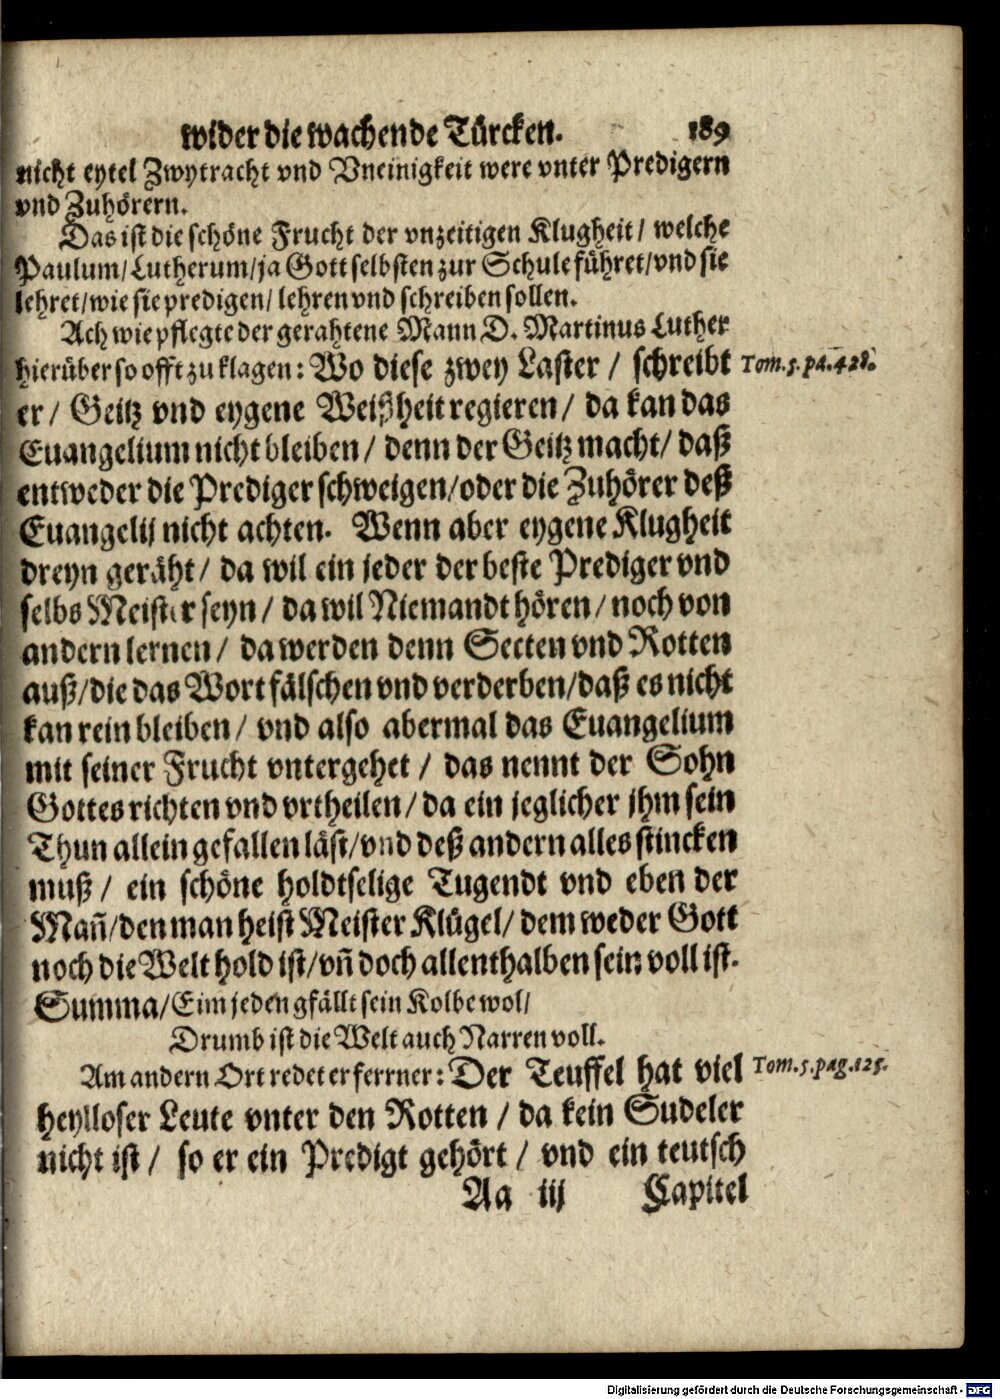 wider die wachende Türcken. 189
nicht eytel Zwytracht vnd Vneinigkeit were vnter Predigern
vnd Zuhörern.
Das ist die schöne Frucht der vnzeitigen Klugheit/ welche
Paulum/Lutherum/ja Gott selbsten zur Schule führet/vnd sie
lehret/wie sie predigen/ lehren vnd schreiben sollen.
Ach wie pflegte der gerahtene Mann D. Martinus Luther
hierüber so offt zu klagen: Wo diese zwey Laster / schreibt Tom.5.pa.428.
er/ Geitz vnd eygene Weißheit regieren/ da kan das
Euangelium nicht bleiben/ denn der Geitz macht/ daß
entweder die Prediger schweigen/oder die Zuhörer deß
Euangelij nicht achten. Wenn aber eygene Klugheit
dreyn geräht/ da wil ein jeder der beste Prediger vnd
selbs Meister seyn/ da wil Niemandt hören/ noch von
andern lernen/ da werden denn Secten vnd Rotten
auß/die das Wort fälschen vnd verderben/daß es nicht
kan rein bleiben/ vnd also abermal das Euangelium
mit seiner Frucht vntergehet / das nennt der Sohn
Gottes richten vnd vrtheilen/ da ein jeglicher jhm sein
Thun allein gefallen läst/vnd deß andern alles stincken
muß/ ein schöne holdtselige Tugendt vnd eben der
Mañ/den man heist Meister Klügel/ dem weder Gott
noch die Welt hold ist/vñ doch allenthalben sein voll ist.
Summa/Eim jeden gfällt sein Kolbe wol/
Drumb ist die Welt auch Narren voll.
Am andern Ort redet er ferrner: Der Teuffel hat viel Tom.5.pag.125.
heylloser Leute vnter den Rotten / da kein Sudeler
nicht ist/ so er ein Predigt gehört/ vnd ein teutsch
Aa iij Capitel
Digitalisierung gefördert durch die Deutsche Forschungsgemeinschaft - DFG